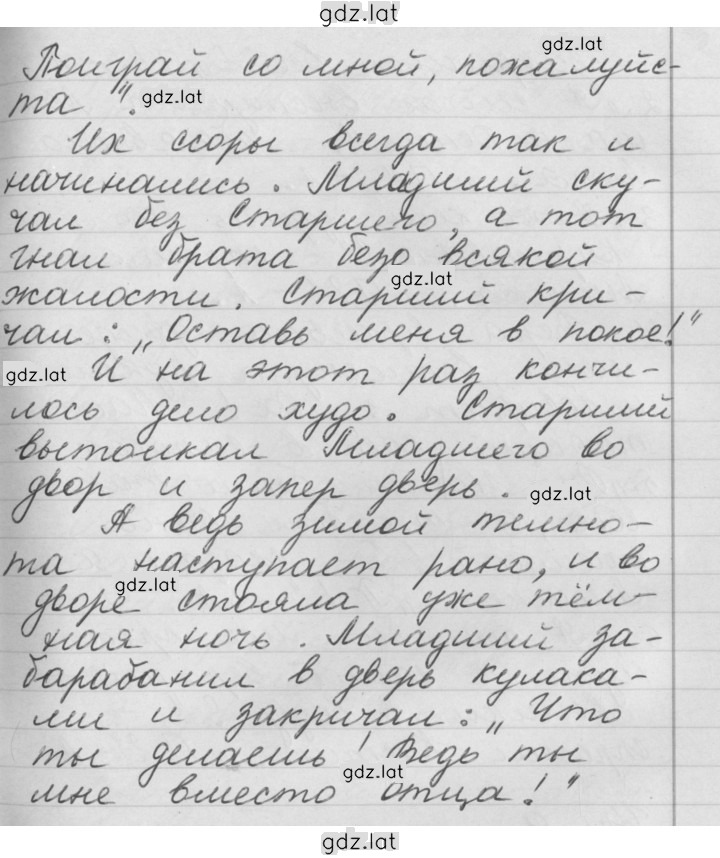 gdz.lat
gdz.lat
Поиграй со мной, пожалуйс-
та". gdz.lat
Их ссоры всегда так и
начинались. Младший ску-
чал без Старшего, а тот
гнал брата безо всякой
gdz.lat
жалости. Старший кри-
чал: „Оставь меня в покое!"
gdz.lat И на этот раз кончи-
лось дело худо. Старший
вытолкал Младшего во
двор и запер дверь. gdz.lat
А ведь зимой темно-
та наступает рано, и во
gdz.lat
дворе стояла уже тём-
ная ночь. Младший за-
барабанил в дверь кулака-
ми и закричал: „Что
ты делаешь! Ведь ты
gdz.lat
мне вместо отца!"
gdz.lat